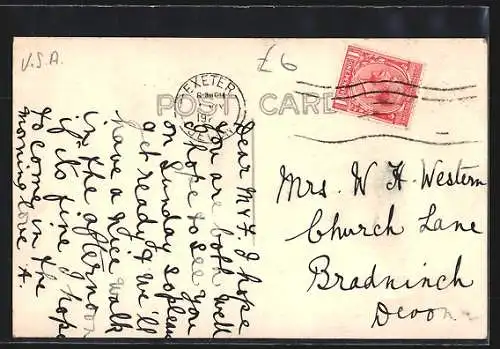 U.S.A.
£6
EXETER
POST CARD
Dear M & F. I hope
you are both well
I hope to see you
on Sunday so please
get ready & we'll
have a nice walk
in the afternoon
if its fine I hope
to come in the
morning love A.
Mrs. W H. Western
Church Lane
Bradninch
Devon